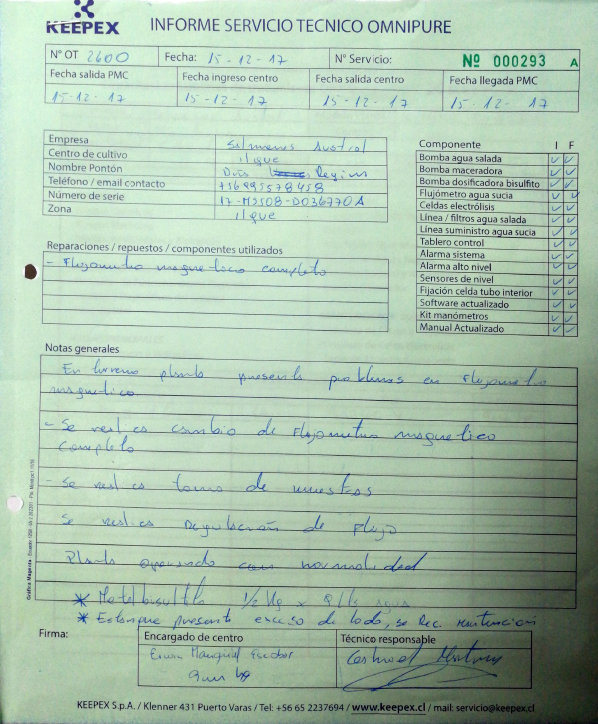 KEEPEX
INFORME SERVICIO TECNICO OMNIPURE
N° OT 2600 Fecha: 15-12-17 N° Servicio: Nº 000293 A
Fecha salida PMC Fecha ingreso centro Fecha salida centro Fecha llegada PMC
15-12-17 15-12-17 15-12-17 15-12-17
Empresa Salmones Austral
Centro de cultivo ilque
Nombre Pontón Don Region
Teléfono / email contacto +56995578458
Número de serie 17-M5508-D036770A
Zona ilque
Componente I F
Bomba agua salada ✓ ✓
Bomba maceradora ✓ ✓
Bomba dosificadora bisulfito ✓ ✓
Flujómetro agua sucia ✓ ✓
Celdas electrólisis ✓ ✓
Línea / filtros agua salada ✓ ✓
Línea suministro agua sucia ✓ ✓
Tablero control ✓ ✓
Alarma sistema ✓ ✓
Alarma alto nivel ✓ ✓
Sensores de nivel ✓ ✓
Fijación celda tubo interior ✓ ✓
Software actualizado ✓ ✓
Kit manómetros ✓ ✓
Manual Actualizado ✓ ✓
Reparaciones / repuestos / componentes utilizados
- Flujometro magnetico completo
Notas generales
En terreno planta presenta problemas en Flujometro
magnetico
- Se realiza cambio de Flujometro magnetico
completo
- Se realiza toma de muestras
Se realiza regulación de Flujo
Planta operando con normalidad
* Metabisulfito 1/2 Kg x lts agua
* Estanque presenta exceso de lodo, se Rec. mantención
Firma:
Encargado de centro Técnico responsable
Erwin Escobar
KEEPEX S.p.A. / Klenner 431 Puerto Varas / Tel: +56 65 2237694 / www.keepex.cl / mail: servicio@keepex.cl